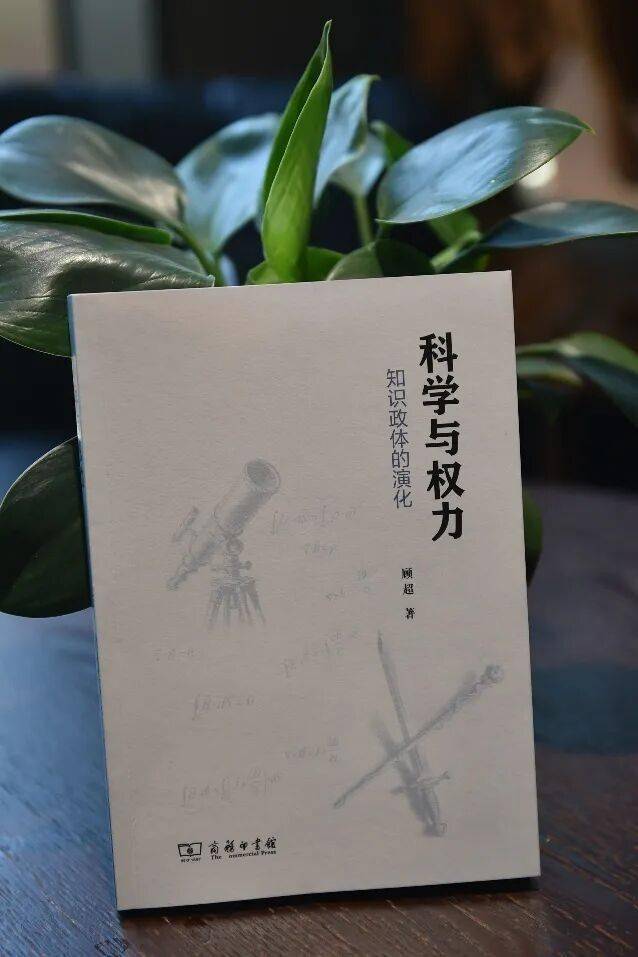 科学与权力
知识政体的演化
顾超 著
商务印书馆
The Commercial Press